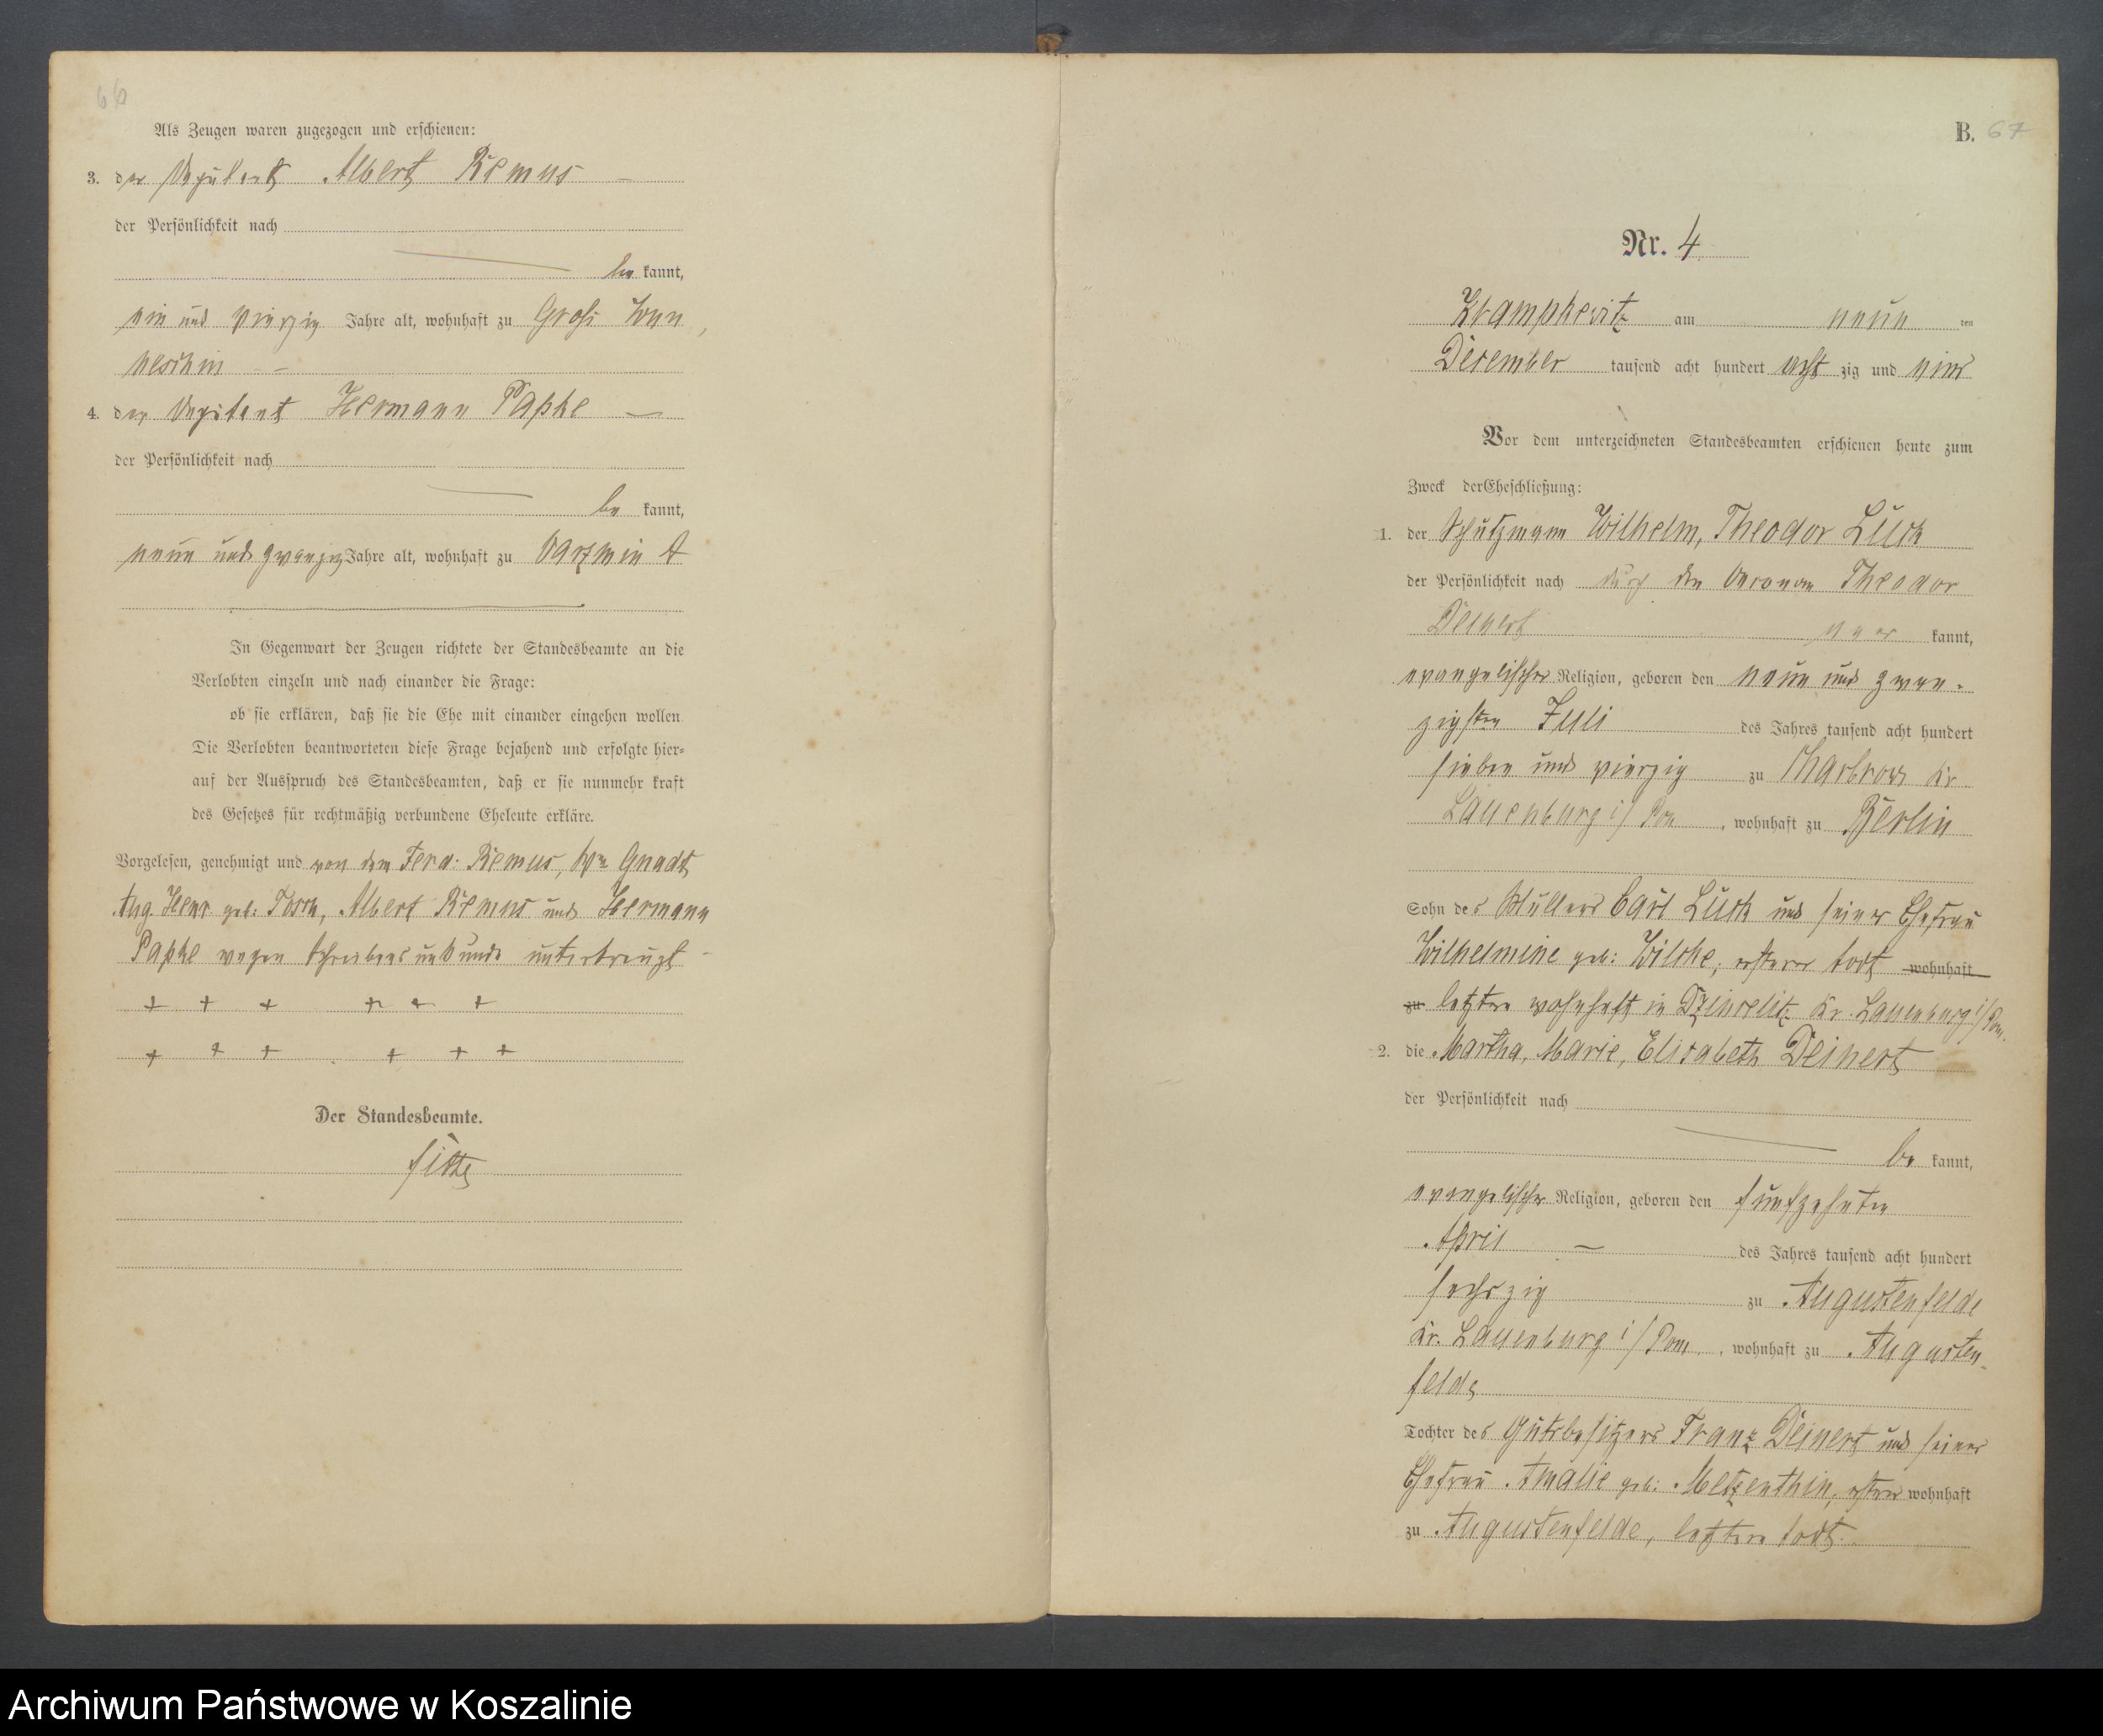 66
Als Zeugen waren zugezogen und erschienen:
3. der Deputant Albert Remus
der Persönlichkeit nach
be kannt,
ein und vierzig Jahre alt, wohnhaft zu Groß Wun
neschin
4. der Deputant Hermann Papke
der Persönlichkeit nach
be kannt,
neun und zwanzig Jahre alt, wohnhaft zu Darzmin A
In Gegenwart der Zeugen richtete der Standesbeamte an die
Verlobten einzeln und nach einander die Frage:
ob sie erklären, daß sie die Ehe mit einander eingehen wollen.
Die Verlobten beantworteten diese Frage bejahend und erfolgte hier=
auf der Ausspruch des Standesbeamten, daß er sie nunmehr kraft
des Gesetzes für rechtmäßig verbundene Eheleute erkläre.
Vorgelesen, genehmigt und von dem Ferd: Remus, Gnadt
Aug. geb: Albert Remus und Hermann
Papke wegen Schreibensunkunde unterkreuzt
+ + + + + +
+ + + + + +
Der Standesbeamte.
B. 67
Nr. 4
Krampkewitz am neun ten
December tausend acht hundert acht zig und vier
Vor dem unterzeichneten Standesbeamten erschienen heute zum
Zweck der Eheschließung:
1. der Schutzmann Wilhelm, Theodor Lück
der Persönlichkeit nach durch den Theodor
Deinert aner kannt,
evangelischer Religion, geboren den neun und zwan-
zigsten Juli des Jahres tausend acht hundert
sieben und vierzig zu Charbrow Kr
Lauenburg i/ Pom, wohnhaft zu Berlin
Sohn des Müllers Carl Lück und seiner Ehefrau
Wilhelmine geb: Wilcke, ersterer todt wohnhaft
zu letztere wohnhaft in Dzincelitz Kr. Lauenburg i/Pom.
2. die Martha, Marie, Elisabeth Deinert
der Persönlichkeit nach
be kannt,
evangelischer Religion, geboren den fünfzehnten
April des Jahres tausend acht hundert
sechszig zu Augustenfelde
Kr. Lauenburg i/ Pom, wohnhaft zu Augusten-
felde
Tochter des Gutsbesitzers Franz Deinert und seiner
Ehefrau Amalie geb: Metzenthin, erstrer wohnhaft
zu Augustenfelde, letztere todt.
Archiwum Państwowe w Koszalinie